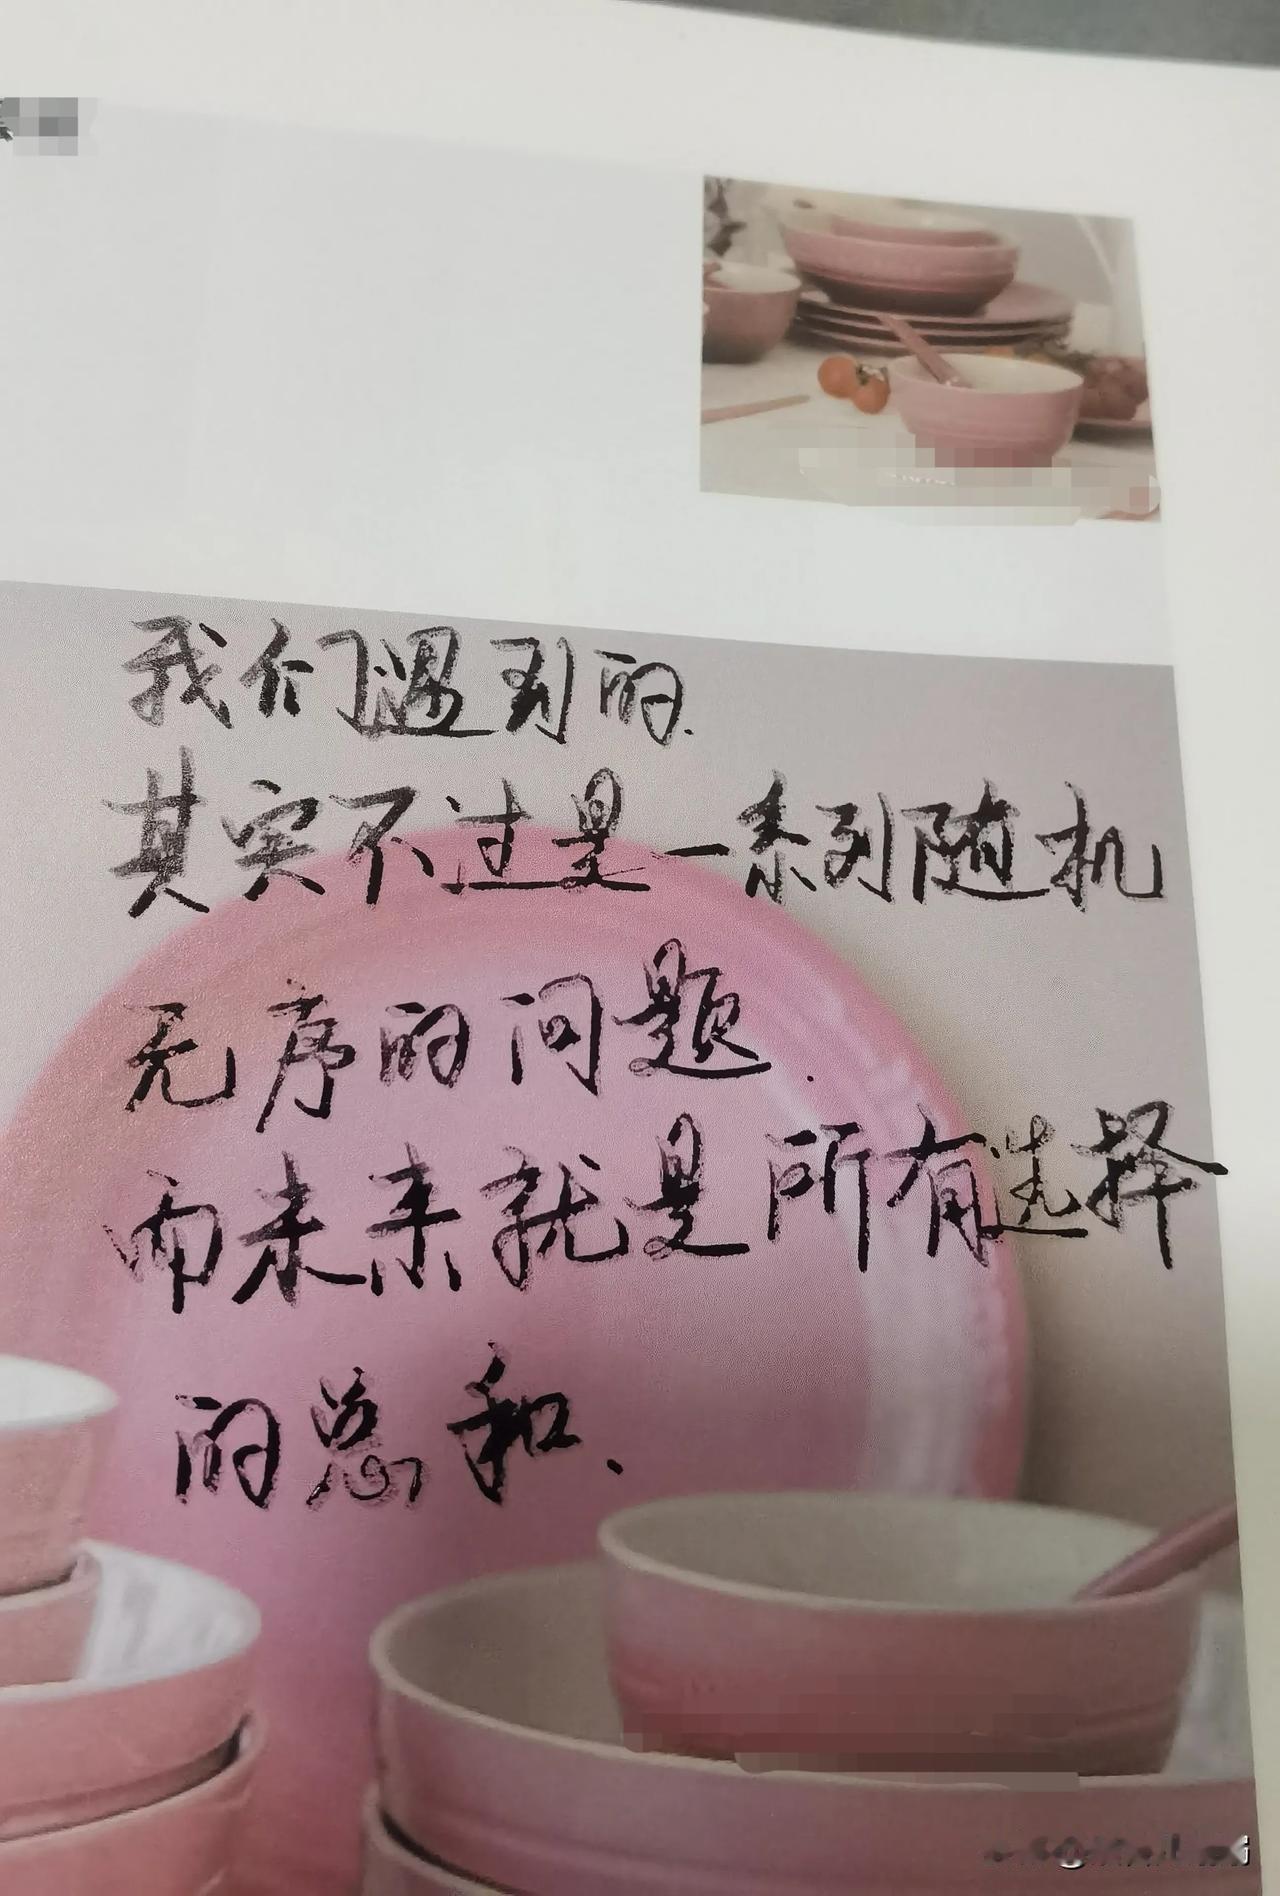 我们遇到的.
其实不过是一系列随机
无序的问题.
而未来就是所有选择
的总和.